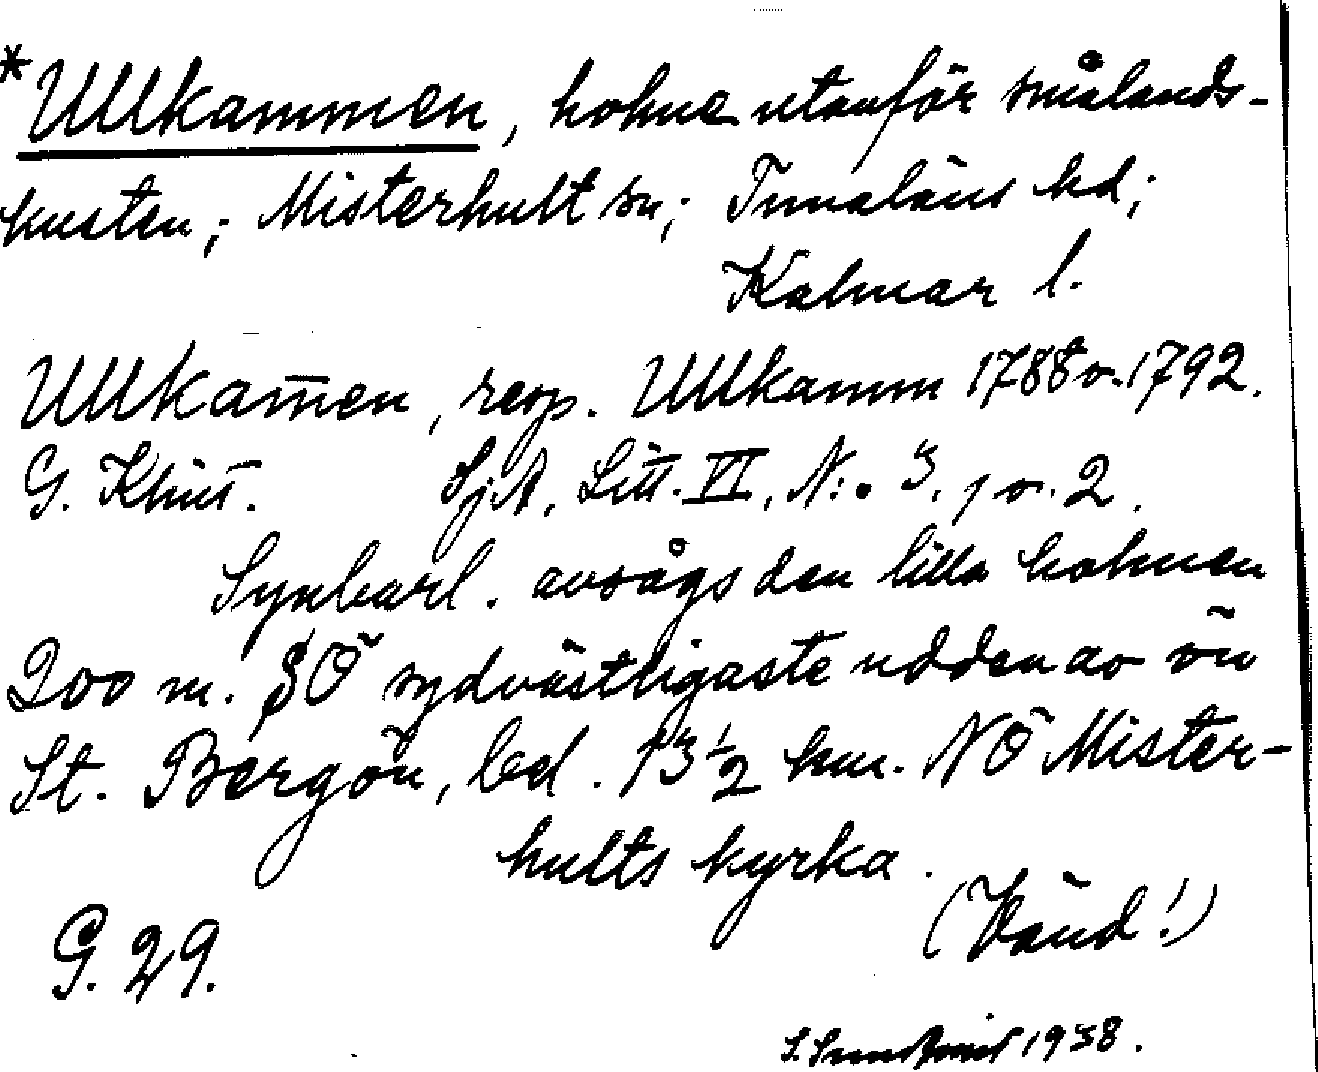 *Ullkammen, holme utanför smålands-
kusten; Misterhult sn; Tunaläns hd;
Kalmar l.
Ullkam̄en, resp. Ullkamm 1788 o. 1792.
G. Klint. SjA, Litt. VI, N:o 3, 1 o. 2.
Synbarl. avsågs den lilla holmen
200 m. SÖ sydvästligaste udden av ön
St. Bergön, bel. 13½ km. NÖ Mister-
hults kyrka.
(Vänd!)
G. 29.
1938.